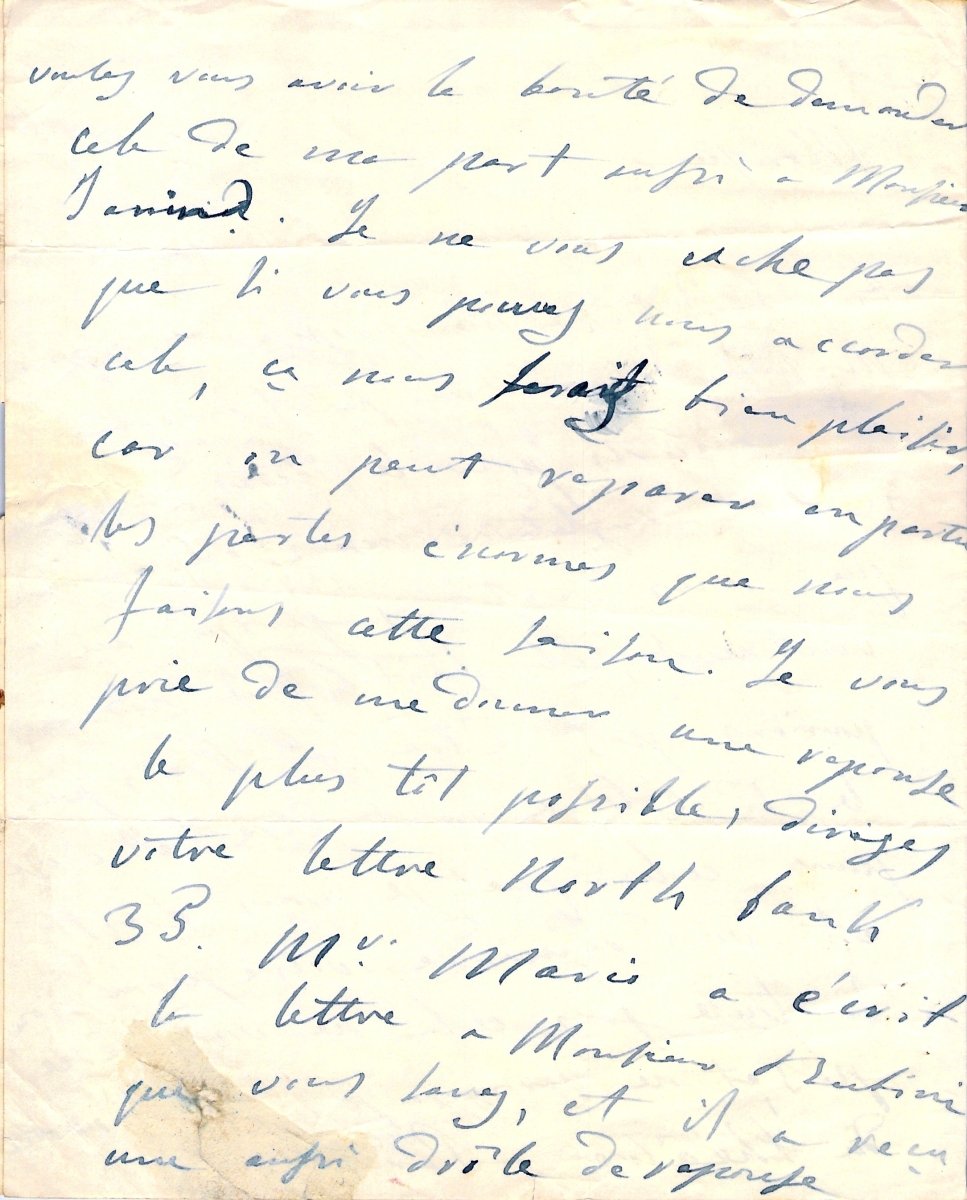 voulez vous avoir la bonté de demander
cela de ma part aussi a Monsieur
Je ne vous cache pas
que si vous pouvez nous accorder
cela, ça nous ferait bien plaisir,
car on peut reparer en partie
les pertes énormes que nous
faisons cette saison. Je vous
prie de me donner une reponse
le plus tôt possible, dirigez
vôtre lettre North bank
35. Mr. Mario a écrit
la lettre a Monsieur Rubini
que vous savez, et il a reçu
une aussi drôle de reponse